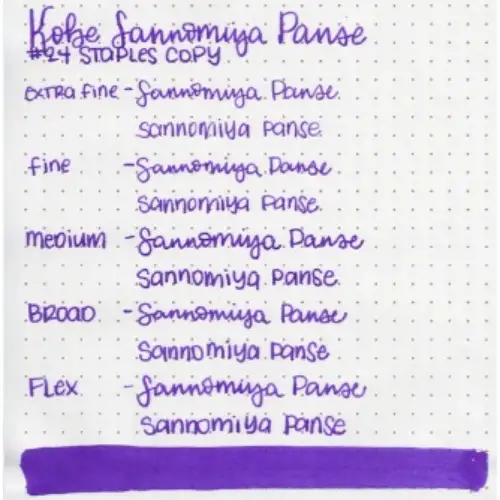 Kobe Sannomiya Panse
#24 STAPLES COPY
EXTRA FINE - Sannomiya Panse
Sannomiya Panse
Fine - Sannomiya Panse
Sannomiya Panse
Medium - Sannomiya Panse
Sannomiya Panse
BROAD - Sannomiya Panse
Sannomiya Panse
FLEX - Sannomiya Panse
Sannomiya Panse